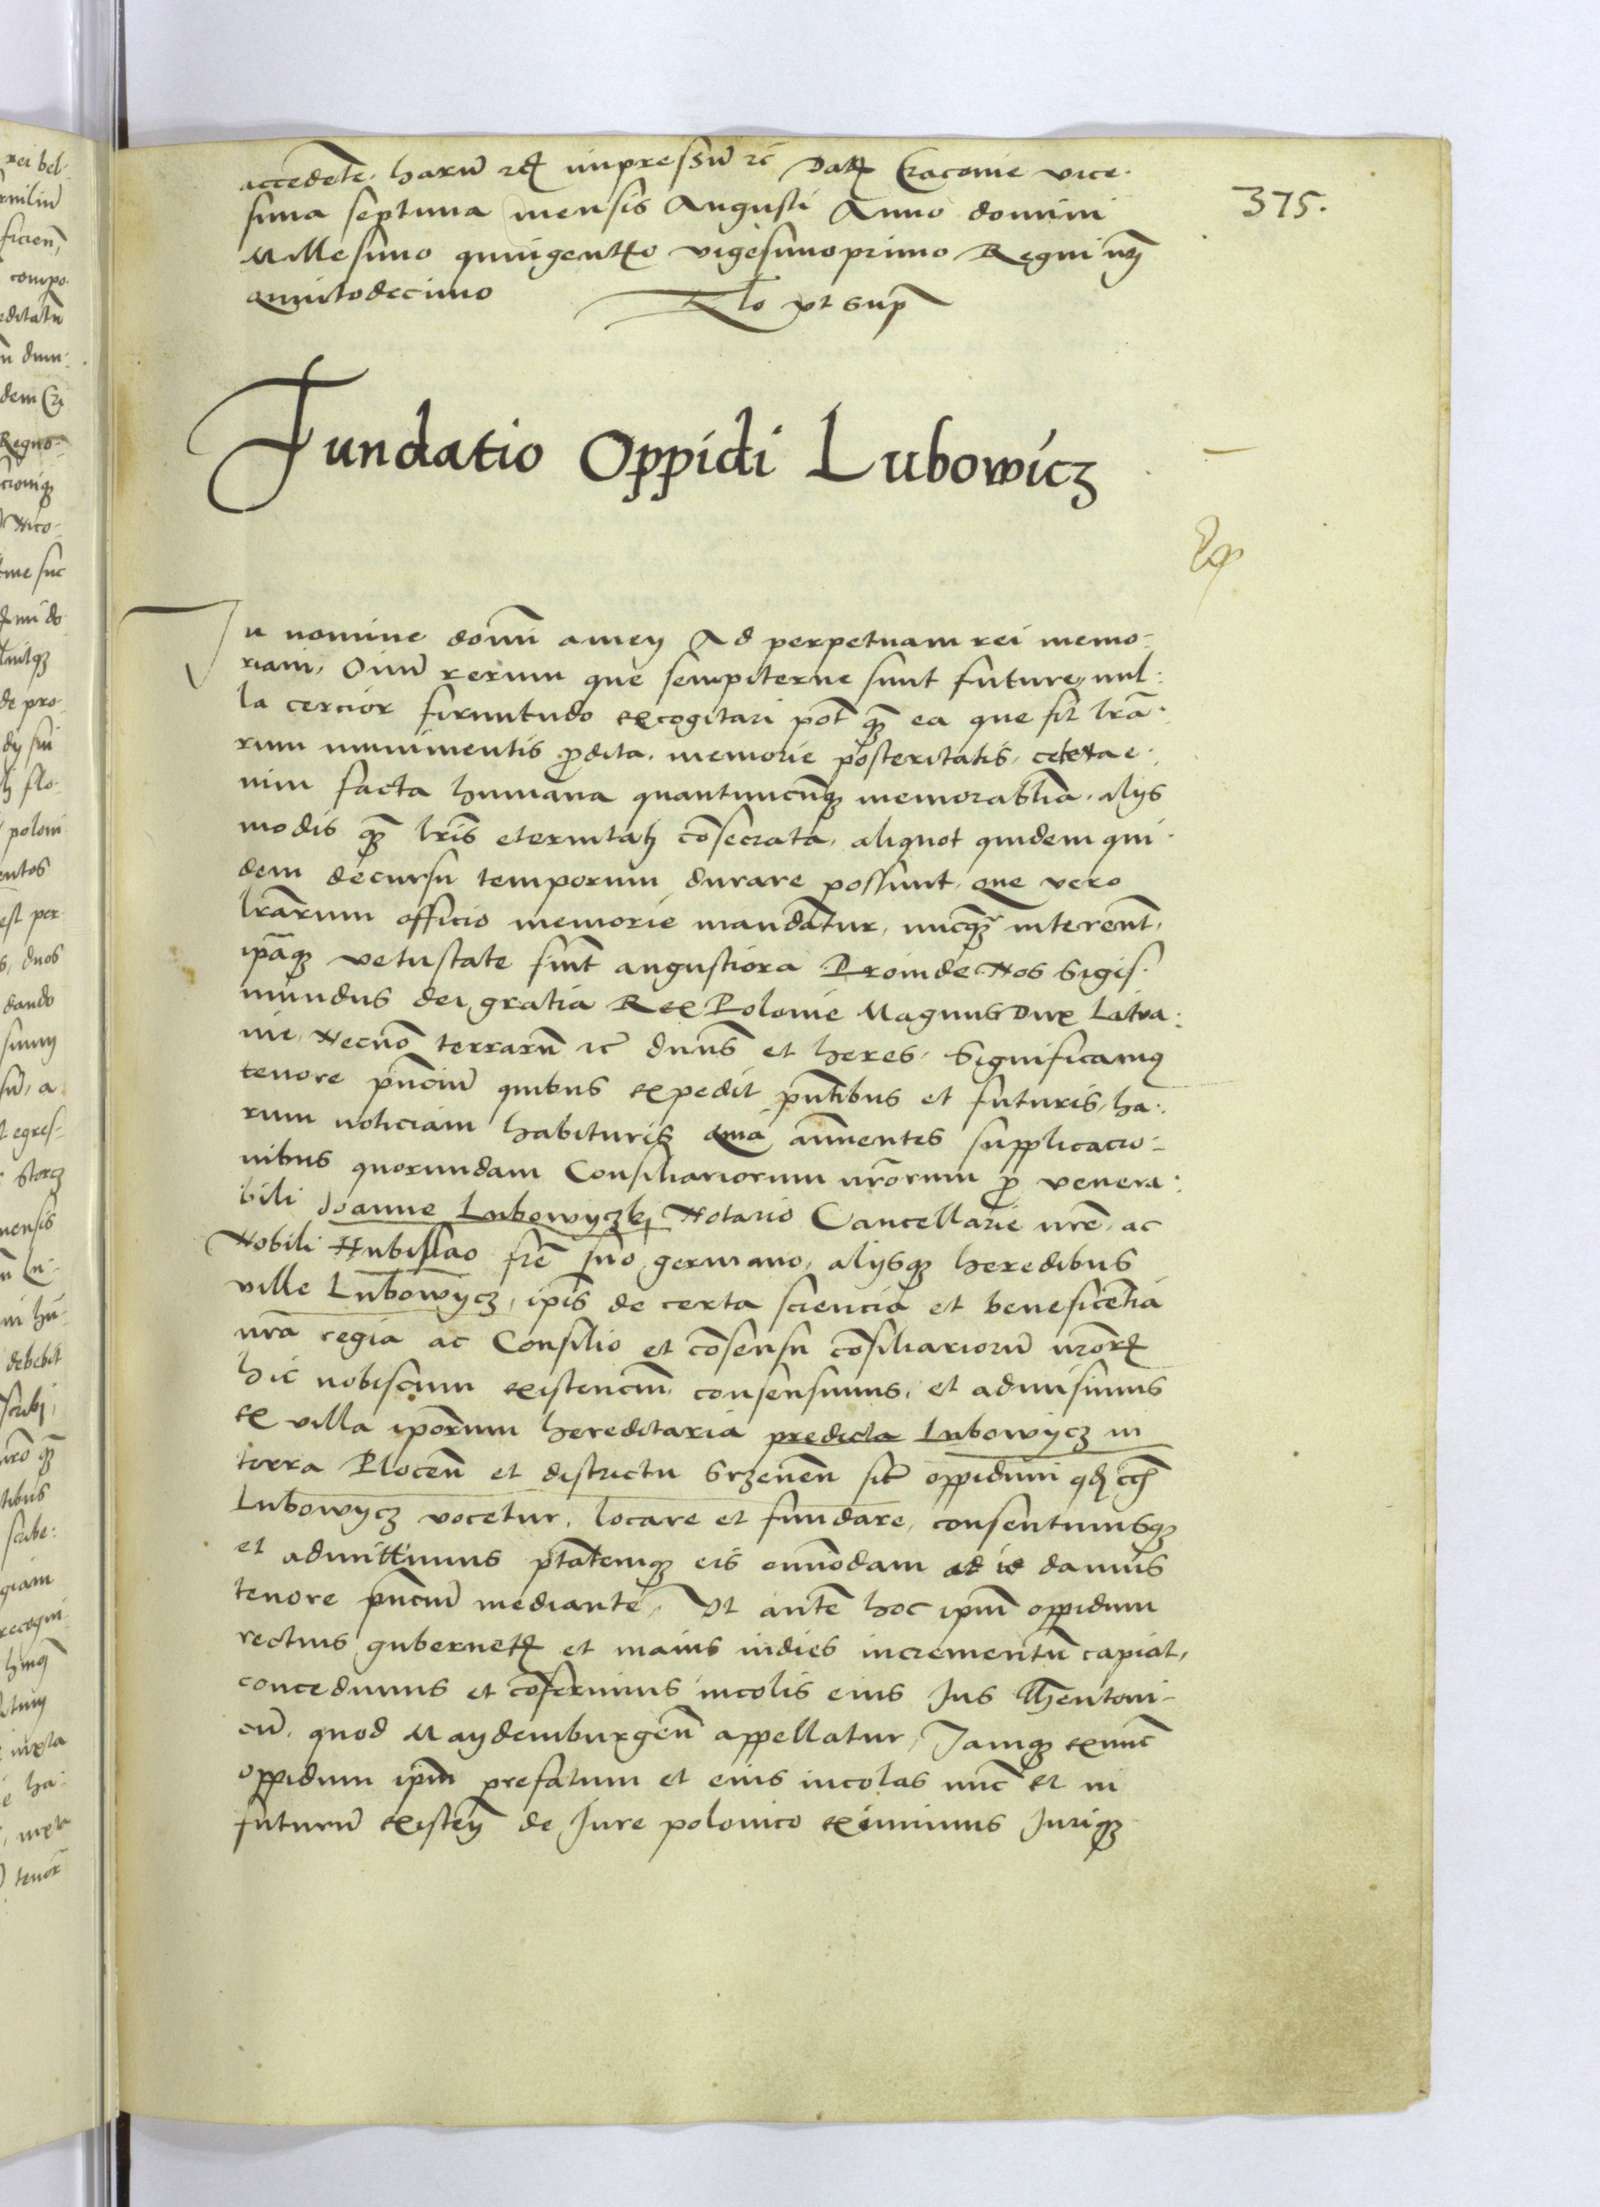 accedente. harū impressū Datꝝ Cracovie vice-
sima septima mensis Augusti Anno domini
Millesimo quingentesimo vigesimoprimo Regni nrī
quintodecimo
Rlo vt supra
375.
Fundatio Oppidi Lubowicz
In nomine domī amen Ad perpetuam rei memo-
riam, Oīum rerum que sempiterne sunt future, nul-
la cercior firmitudo excogitari pōt quā ea que sit lrā-
rum munimentis prodita. memorie posteritatis, cetera e-
nim facta humana quantumcunque memorabilia, alijs
modis quā lrīs eternitati cōsecrata, aliquot quidem qui-
dem decursu temporum durare possunt, que vero
lrārum officio memorie mandātur, nunquā intereunt,
ipāque vetustate sunt angustiora Proinde Nos Sigis-
mundus dei gratia Rex Polonie Magnus Dux Litva-
nie, Necnō terrarū ꝛc̄ dnūs et heres, Significamus
tenore pn̄ciū quibus expedit pn̄tibus et futuris, ha-
rum noticiam habituris quia annuentes supplicacio-
nibus quorundam Consiliariorum nr̄orum pro venera-
bili Joanne Lubowyczkj Notario Cancellarie nrē, ac
Nobili frē suo germano, alijsque heredibus
ville Lubowycz, ipīs de certa sciencia et beneficētia
nrā regia ac Consilio et cōsensu cōsiliariorū nrōrꝝ
hic nobiscum existenciū, consensimus, et admisimus
ex villa ipōrum hereditaria predicta Lubowycz in
terra Plocen̄ et districtu Srzenēn̄ sitᷓ oppidum qd
Lubowycz vocetur, locare et fundare, consentimusque
et admittimus ptātemque eis omnodam ad id damus
tenore pn̄ciū mediante, Vt autē hoc ipm̄ oppidum
rectius gubernetꝝ et maius indies incrementū capiat,
concedimus et cōferimus incolis eius Jus Theutoni-
cū, quod Maydemburgen̄ appellatur, Jamque exnunc
oppidum ipm̄ prefatum et eius incolas nunc et in
futurū existen̄ de Jure polonico eximimus Jurique